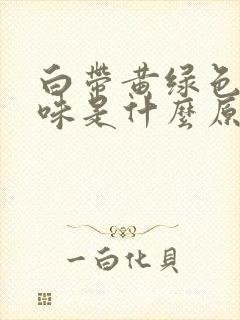 白带黄绿色
味是什麼原
一白化貝